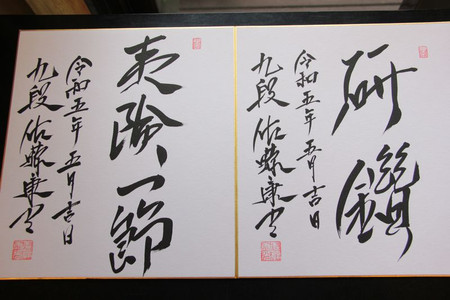 研鑽
令和五年 五月吉日
九段 佐藤康光
夷険一節
令和五年 五月吉日
九段 佐藤康光